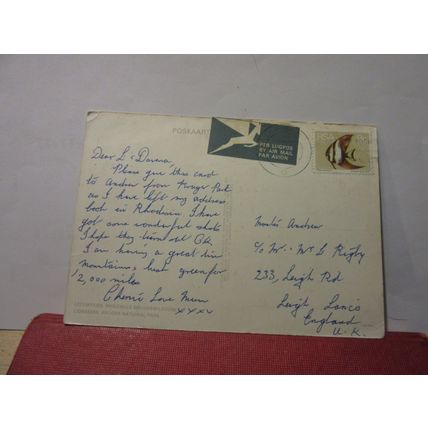 POSKAART
PER LUGPOS
BY AIR MAIL
PAR AVION
RSA
Dear L & Donna,
Please give this card
to Andrew from Kruger Park
as I have left my address
book in Rhodesia. I have
got some wonderful shots
I hope they turn out O.K.
I am having a great time
mountains, lush green for
2,000 miles
Cheerio Love Mum
xxxx
KRUGER NATIONAL PARK
Master Andrew
c/o Mr. & Mrs L Rigby
233, Leigh Rd
Leigh, Lancs
England
U.K.